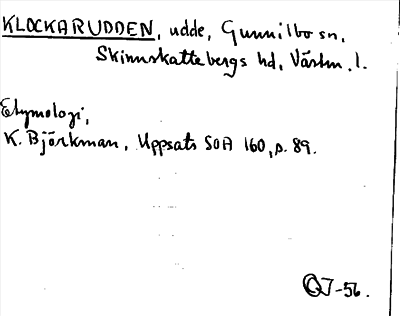 KLOCKARUDDEN, udde, Gunnilbo sn,
Skinnskattebergs hd, Västm. l.
Etymologi,
K. Björkman, Uppsats SOA 160, s. 89.
OJ-56.